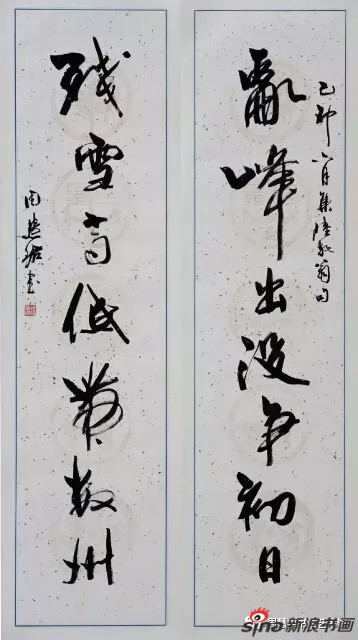 己卯八月集陸放翁句
亂峰出没争初日
残雪高低帶数州
周慧珺書
sina新浪书画